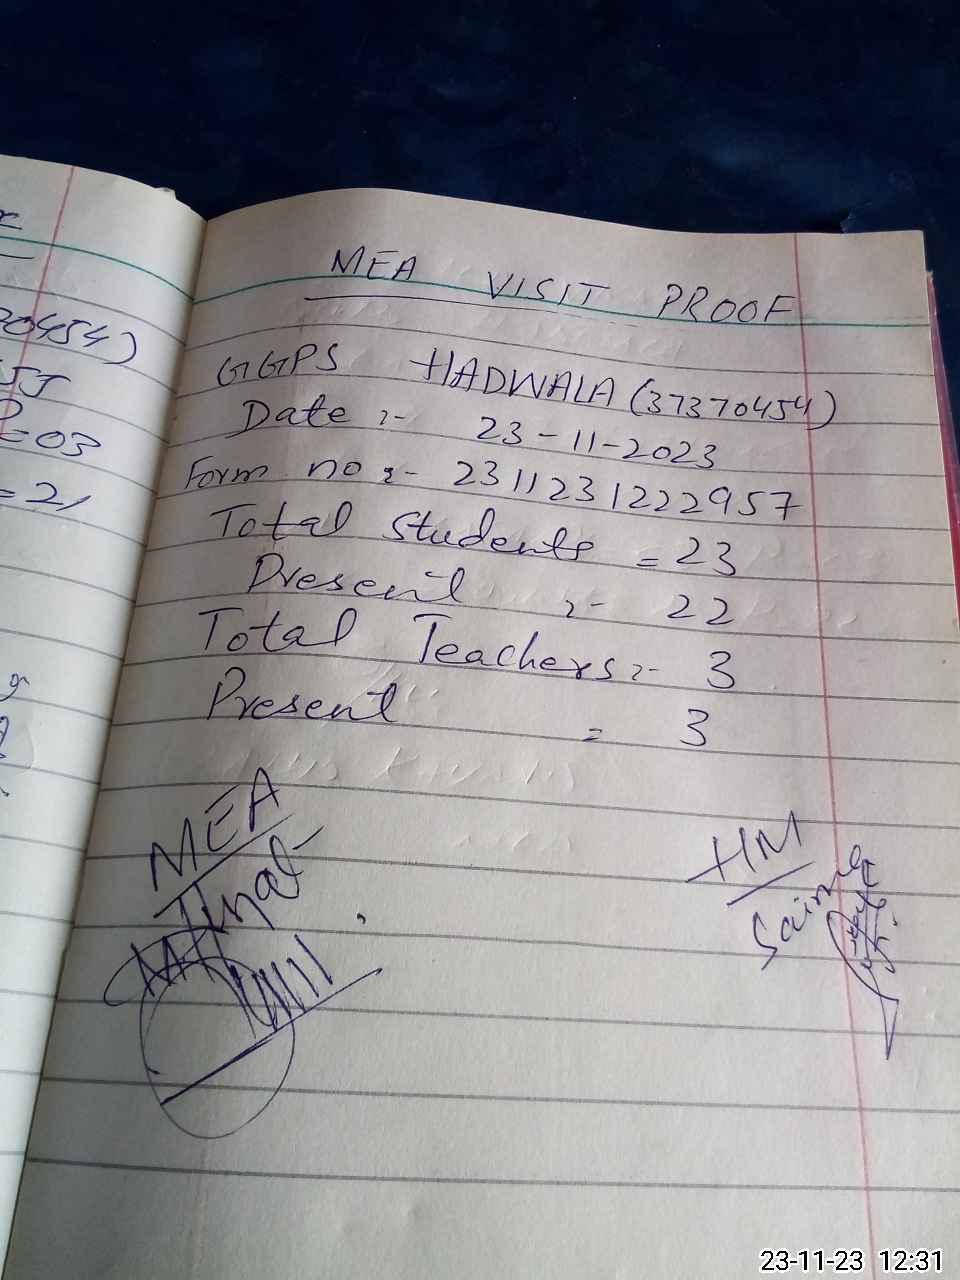 20454)
=03
=21
MEA VISIT PROOF
GGPS HADWALA (37370454)
Date :- 23-11-2023
Form no :- 2311231222957
Total Students = 23
Present :- 22
Total Teachers :- 3
Present = 3
MEA
HM
Saima
23-11-23 12:31